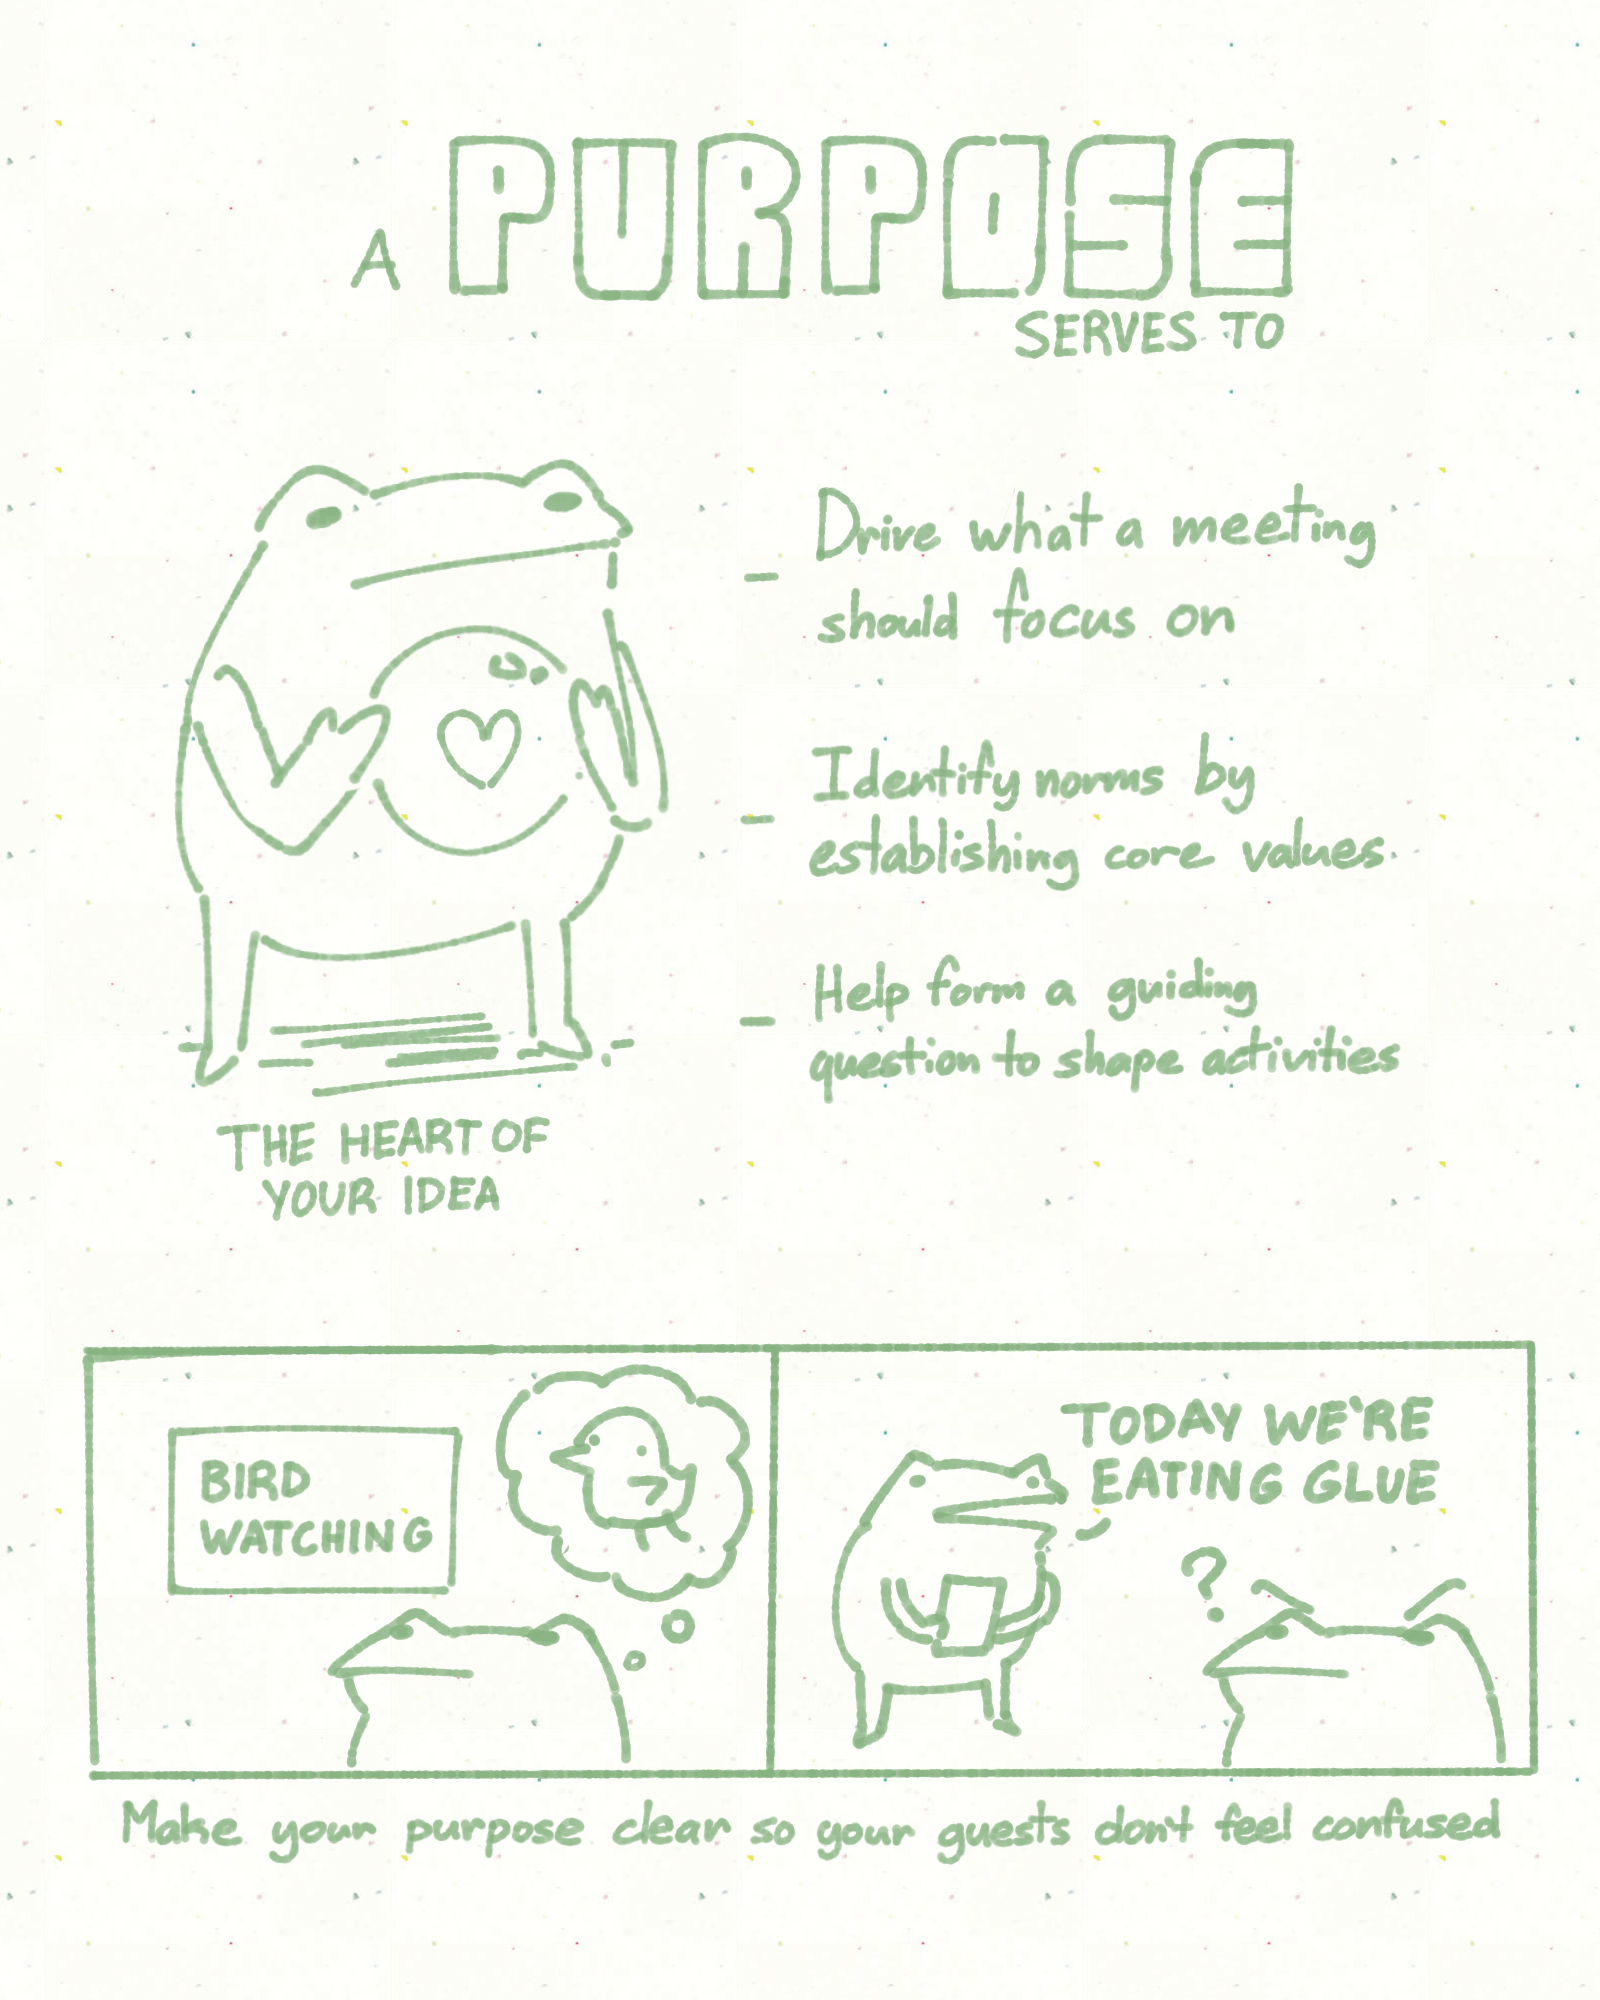 A PURPOSE
SERVES TO
- Drive what a meeting
should focus on
- Identify norms by
establishing core values.
- Help form a guiding
question to shape activities
THE HEART OF
YOUR IDEA
BIRD
WATCHING
TODAY WE'RE
EATING GLUE
?
Make your purpose clear so your guests don't feel confused